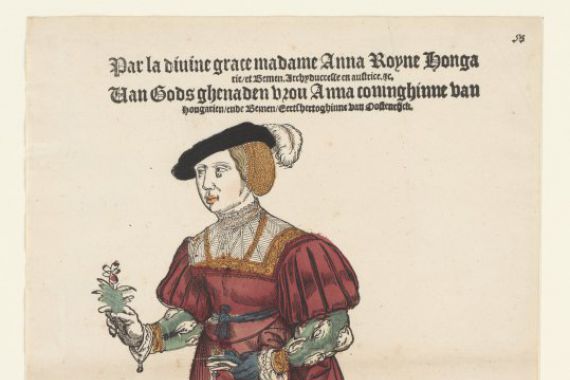 53
Par la diuine grace madame Anna Royne Honga
rie/et Bemen. Archyducesse en austrice. ꝛc,
Uan Gods ghenaden vrou Anna coninghinne van
Hongarien/ende Bemen/Eertshertoghinne van Oostenrijck.